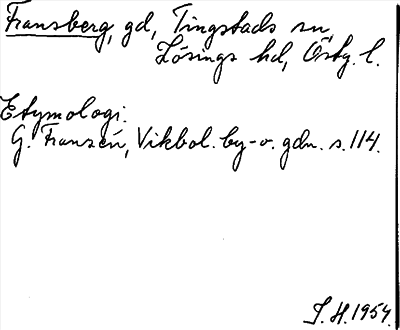 Fransberg, gd, Tingstads sn,
Lösings hd, Östg. l.
Etymologi.
G. Franzén, Vikbol. by-o. gdn. s. 114.
I. H. 1954.